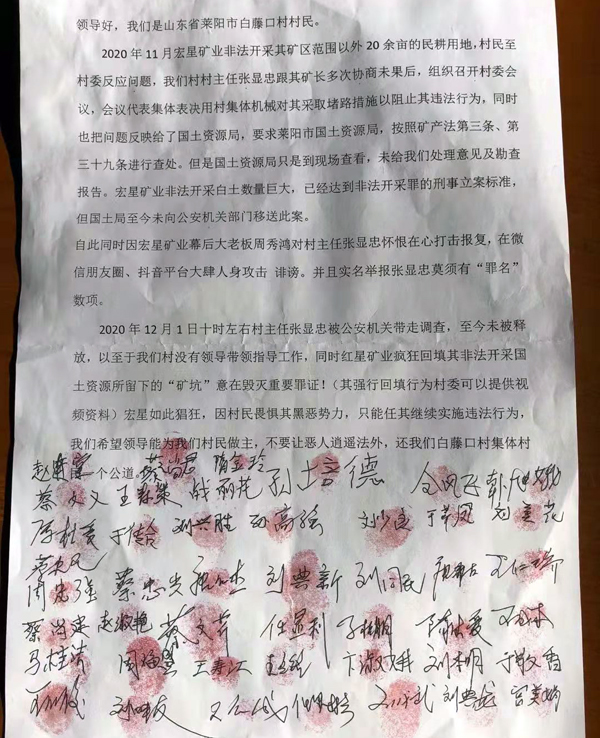 领导好，我们是山东省莱阳市白藤口村村民。
2020年11月宏星矿业非法开采其矿区范围以外20余亩的民耕用地，村民至
村委反应问题，我们村村主任张显忠跟其矿长多次协商未果后，组织召开村委会
议，会议代表集体表决用村集体机械对其采取堵路措施以阻止其违法行为，同时
也把问题反映给了国土资源局，要求莱阳市国土资源局，按照矿产法第三条、第
三十九条进行查处。但是国土资源局只是到现场查看，未给我们处理意见及勘查
报告。宏星矿业非法开采白土数量巨大，已经达到非法开采罪的刑事立案标准，
但国土局至今未向公安机关部门移送此案。
自此同时因宏星矿业幕后大老板周秀鸿对村主任张显忠怀恨在心打击报复，在微
信朋友圈、抖音平台大肆人身攻击 诽谤。并且实名举报张显忠莫须有“罪名”
数项。
2020年12月1日十时左右村主任张显忠被公安机关带走调查，至今未被释
放，以至于我们村没有领导带领指导工作，同时红星矿业疯狂回填其非法开采国
土资源所留下的“矿坑”意在毁灭重要罪证！(其强行回填行为村委可以提供视
频资料）宏星如此猖狂，因村民畏惧其黑恶势力，只能任其继续实施违法行为，
我们希望领导能为我们村民做主，不要让恶人逍遥法外，还我们白藤口村集体村
一个公道。
隋金玲
蔡文义 战丽花 孙培德
刘兴胜
周忠强 蔡忠光 刘典新
蔡兴建 赵淑艳 蔡文芹 任显利
马桂清 王寿江 刘本明